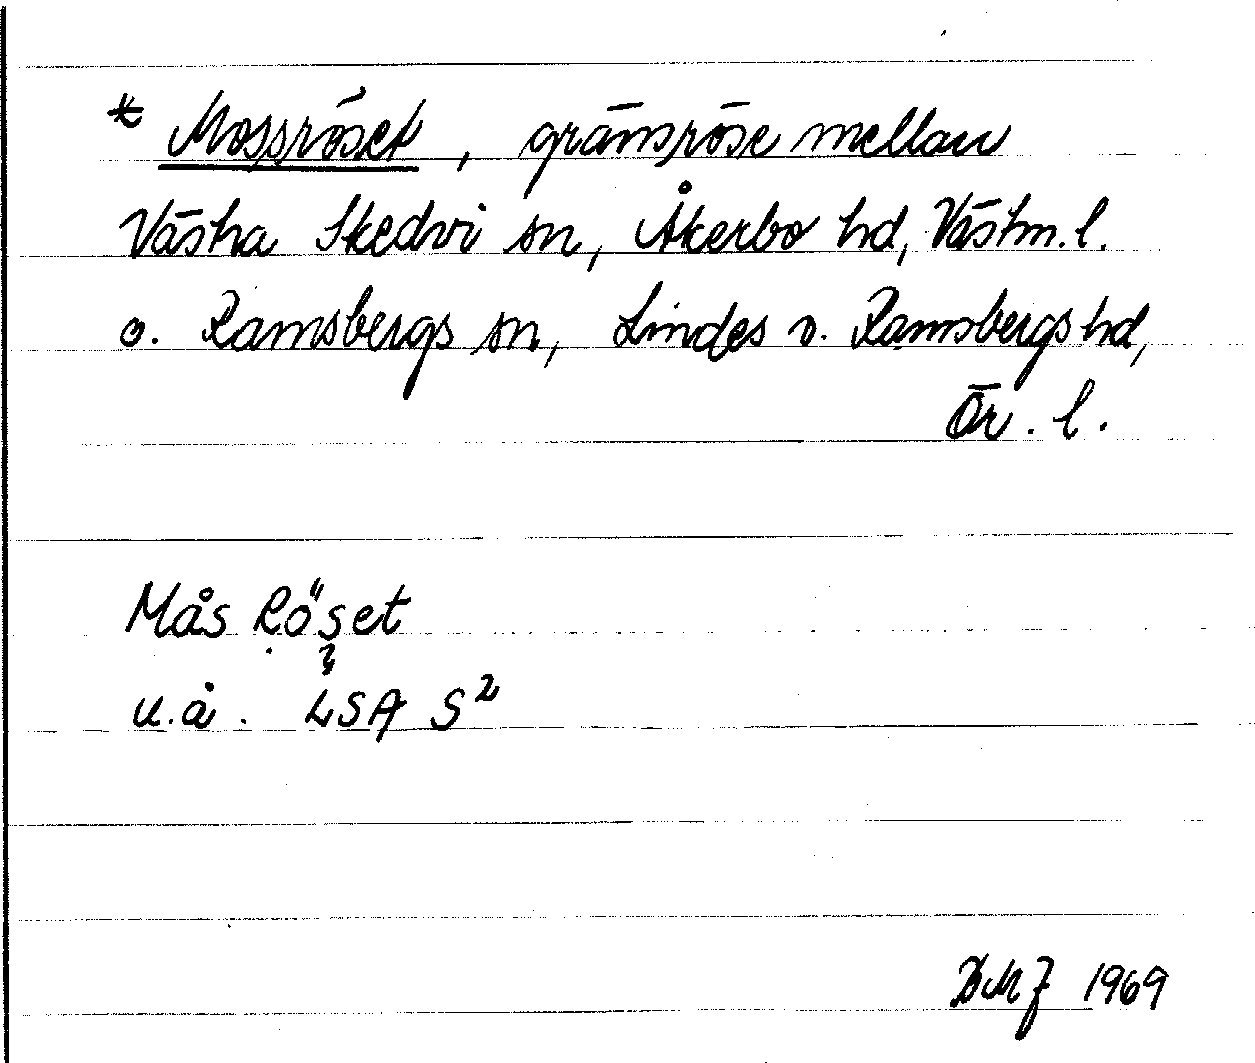 * Mossröset, gränsröse mellan
Västra Skedvi sn, Åkerbo hd, Västm. l.
o. Ramsbergs sn, Lindes o. Ramsbergs hd,
Ör. l.
Mås Röset
?
u.å. LSA S²
1969